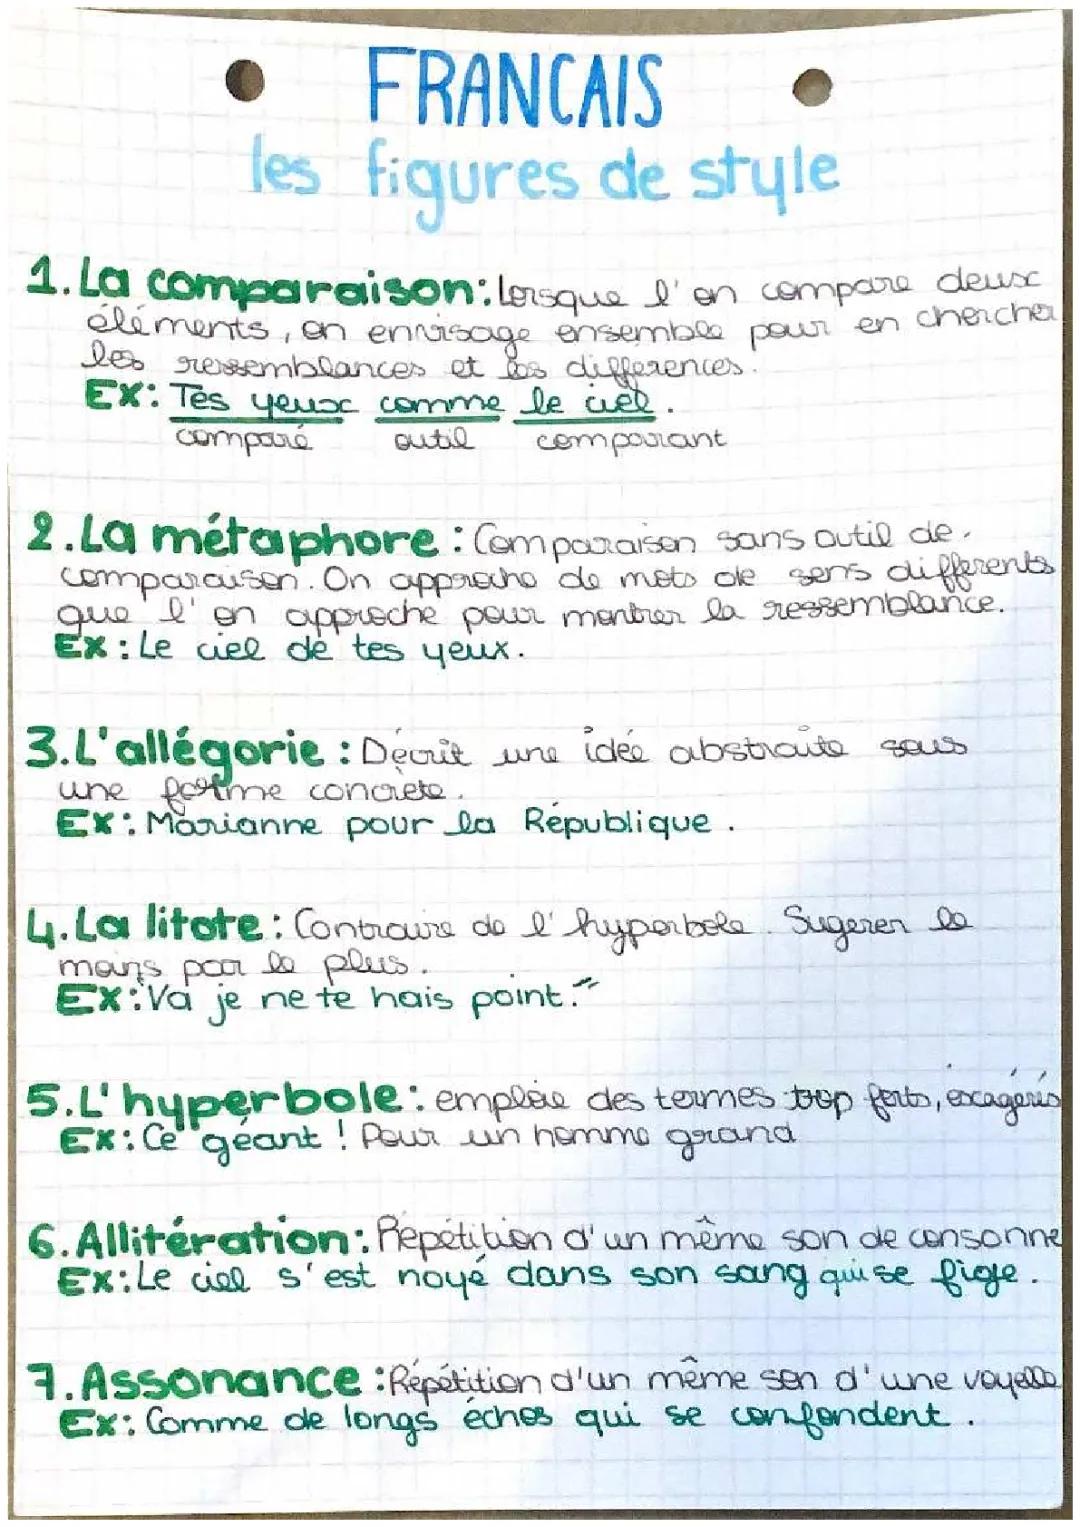 FRANCAIS
les figures de style
1. La comparaison: lorsque l'on compare deux
éléments, on envisage ensemble pour en chercher
les ressemblances et les differences.
EX: Tes yeux comme le ciel.
comparé outil comparant
2. La métaphore: Comparaison sans outil de
comparaison. On approche de mots de sens differents
que l'on approche pour montrer la ressemblance.
EX: Le ciel de tes yeux.
3. L'allégorie: Décrit une idée abstraite sous
une forme concrète.
EX: Marianne pour la République.
4. La litote: Contraire de l'hyperbole. Sugerer le
moins par le plus.
EX: "Va je ne te hais point."
5. L'hyperbole: emploie des termes trop forts, exagérés
EX: Ce géant ! Pour un homme grand
6. Allitération: Répétition d'un même son de consonne
EX: Le ciel s'est noyé dans son sang qui se fige.
7. Assonance: Répétition d'un même son d'une voyelle
EX: Comme de longs échos qui se confondent.